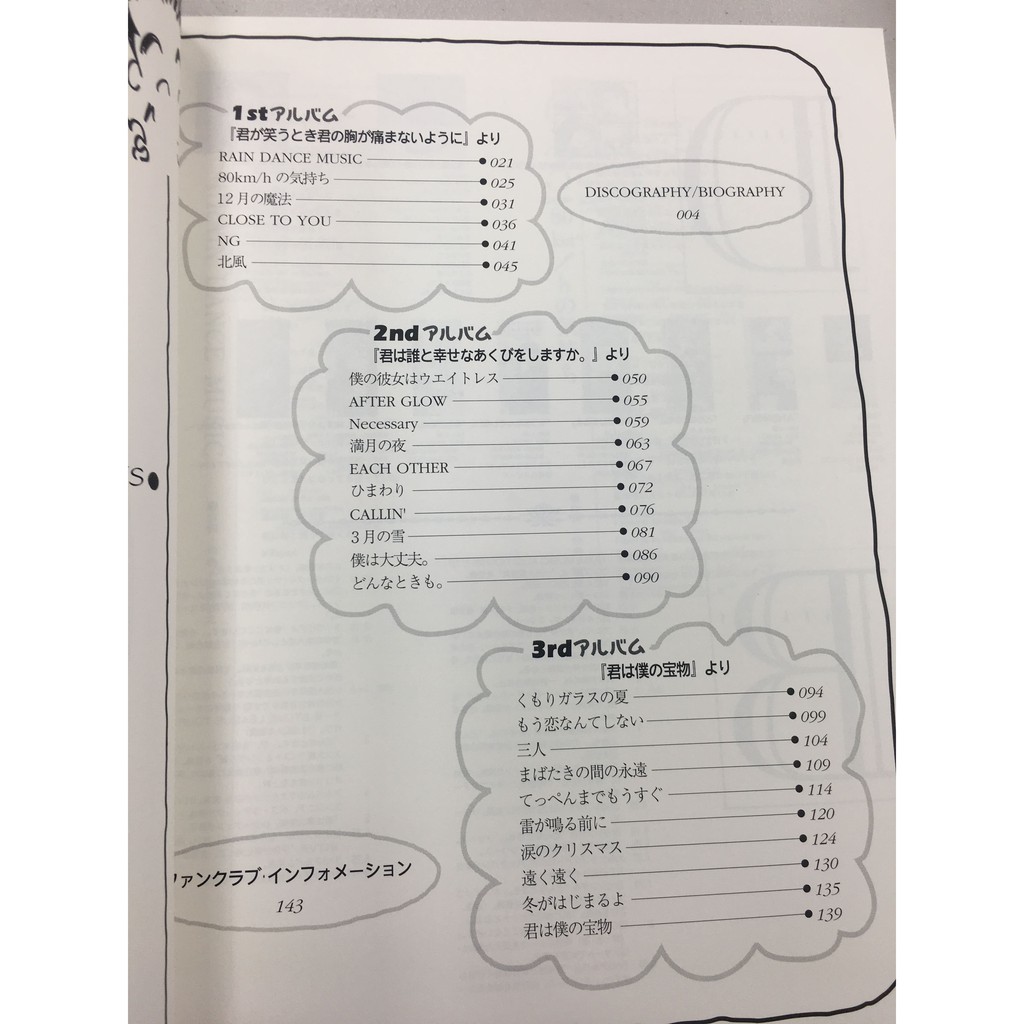 1stアルバム
『君が笑うとき君の胸が痛まないように』より
RAIN DANCE MUSIC 021
80km/h の気持ち 025
12月の魔法 031
CLOSE TO YOU 036
NG 041
北風 045
DISCOGRAPHY/BIOGRAPHY
004
2ndアルバム
『君は誰と幸せなあくびをしますか。』より
僕の彼女はウエイトレス 050
AFTER GLOW 055
Necessary 059
満月の夜 063
EACH OTHER 067
ひまわり 072
CALLIN' 076
3月の雪 081
僕は大丈夫。 086
どんなときも。 090
S
3rdアルバム
『君は僕の宝物』より
くもりガラスの夏 094
もう恋なんてしない 099
三人 104
まばたきの間の永遠 109
てっぺんまでもうすぐ 114
雷が鳴る前に 120
涙のクリスマス 124
遠く遠く 130
冬がはじまるよ 135
君は僕の宝物 139
ファンクラブ・インフォメーション
143